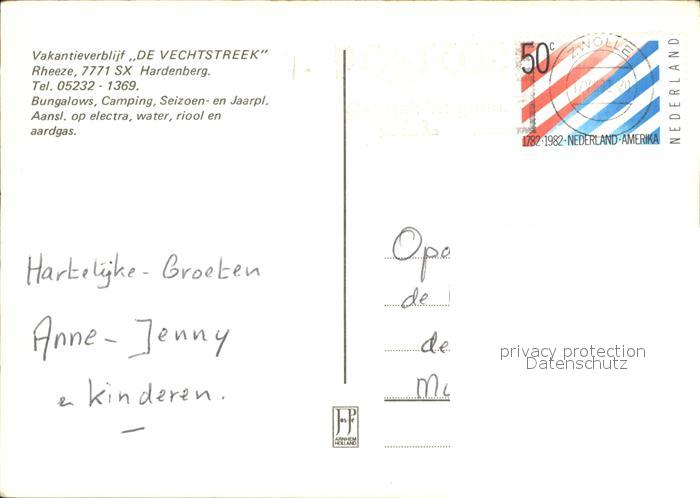 Vakantieverblijf „DE VECHTSTREEK"
Rheeze, 7771 SX Hardenberg.
Tel. 05232 - 1369.
Bungalows, Camping, Seizoen- en Jaarpl.
Aansl. op electra, water, riool en
aardgas.
50c
ZWOLLE
NEDERLAND
1782·1982·NEDERLAND·AMERIKA
Hartelijke - Groeten
Anne - Jenny
en kinderen.
Opa
de
de
Mu
privacy protection
Datenschutz
JosPé
ARNHEM
HOLLAND